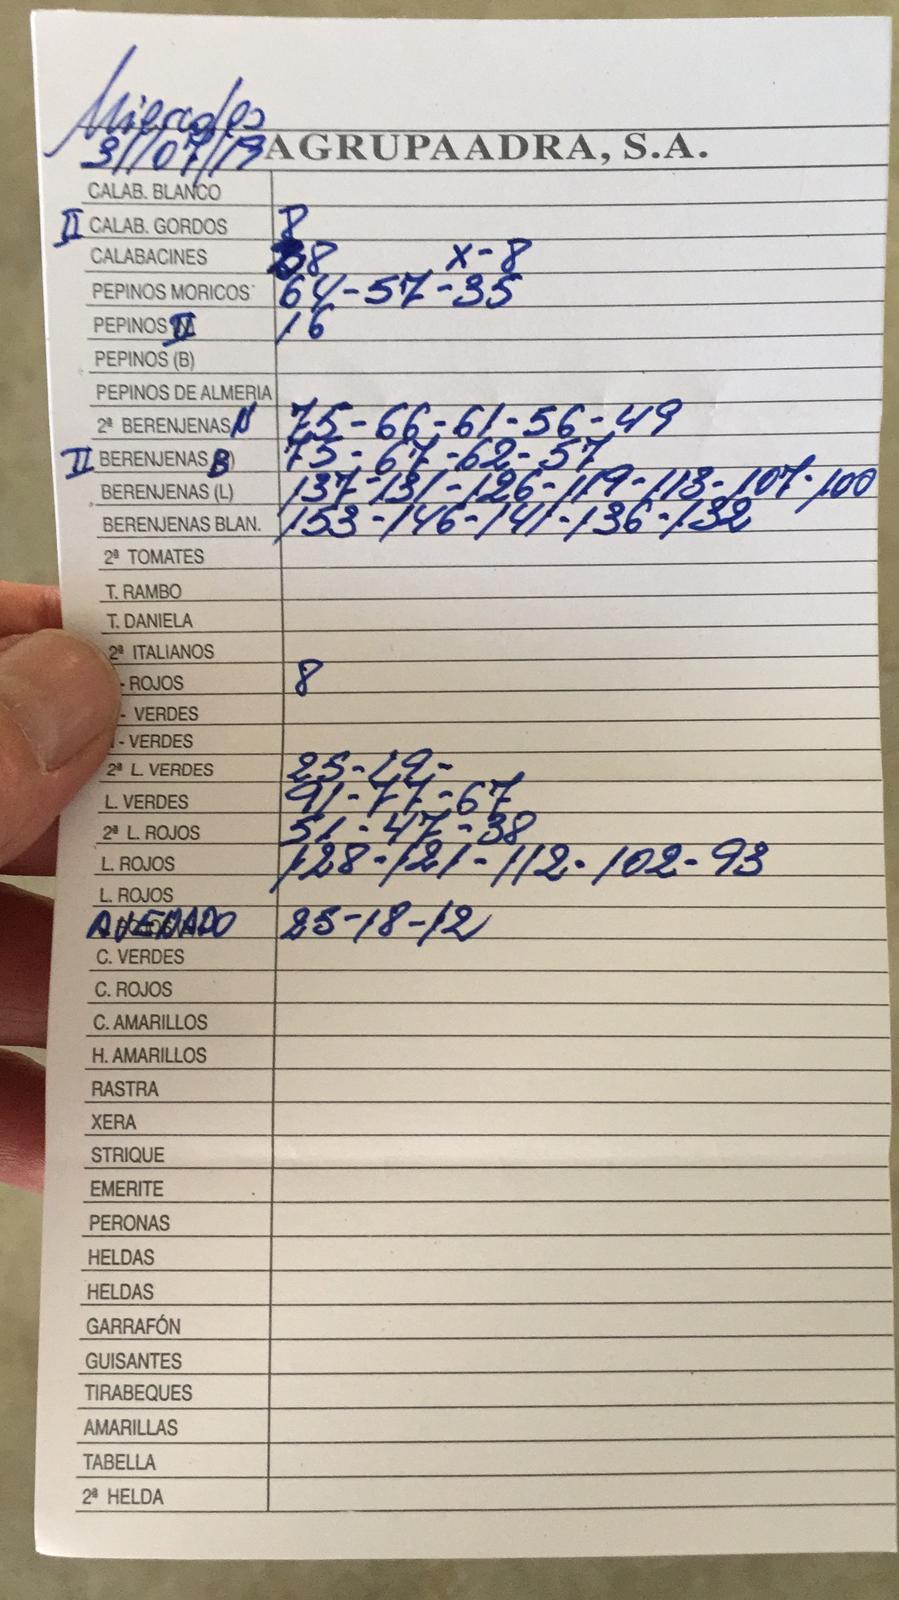 Miercoles
31/07/19 AGRUPAADRA, S.A.
CALAB. BLANCO
II CALAB. GORDOS 8
CALABACINES 38 x-8
PEPINOS MORICOS 64-57-35
PEPINOS II 16
PEPINOS (B)
PEPINOS DE ALMERIA
2ª BERENJENAS N 75-66-61-56-49
II BERENJENAS B) 75-67-62-57
BERENJENAS (L) 137-131-126-119-113-107-100
BERENJENAS BLAN. 153-146-141-136-132
2ª TOMATES
T. RAMBO
T. DANIELA
2ª ITALIANOS
- ROJOS 8
- VERDES
- VERDES
2ª L. VERDES 25-19-
L. VERDES 91-77-67
2ª L. ROJOS 51-47-38
L. ROJOS 128-121-112-102-93
L. ROJOS
25-18-12
C. VERDES
C. ROJOS
C. AMARILLOS
H. AMARILLOS
RASTRA
XERA
STRIQUE
EMERITE
PERONAS
HELDAS
HELDAS
GARRAFÓN
GUISANTES
TIRABEQUES
AMARILLAS
TABELLA
2ª HELDA